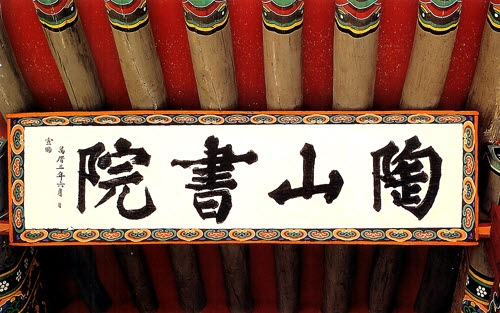 陶山書院
萬曆三年六月 日
宣賜